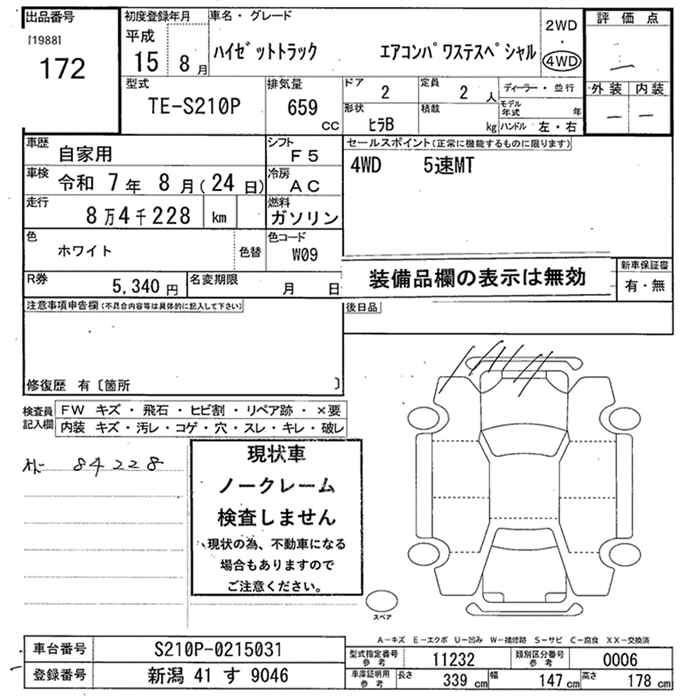 出品番号
[1988]
172
初度登録年月
平成
15年 8月
車名・グレード
ハイゼットトラック エアコンパワステスペシャル
2WD
・
4WD
評価点
外装 内装
型式
TE-S210P
排気量
659
CC
ドア
2
定員
2 人
ディーラー・並行
形状
ヒラB
積数
kg
モデル年式 年
ハンドル 左・右
車歴
自家用
シフト
F5
セールスポイント(正常に機能するものに限ります)
4WD 5速MT
車検
令和 7年 8月(24日)
冷房
AC
走行
8万4千228 km
燃料
ガソリン
色
ホワイト
色替
色コード
W09
装備品欄の表示は無効
新車保証書
有・無
R券
5,340 円
名変期限
月 日
注意事項申告欄(不具合内容等は具体的に記入して下さい)
後日品
修復歴 有〔箇所 〕
検査員記入欄
FW キズ・飛石・ヒビ割・リペア跡・×要
内装 キズ・汚レ・コゲ・穴・スレ・キレ・破レ
84228
現状車
ノークレーム
検査しません
現状の為、不動車になる
場合もありますので
ご注意ください。
スペア
A-キズ E-エクボ U-凹み W-補修跡 S-サビ C-腐食 XX-交換済
車台番号
S210P-0215031
登録番号
新潟 41 す 9046
型式指定番号
参考
11232
類別区分番号
参考
0006
車庫証明用
参考
長さ
339 cm
幅
147 cm
高さ
178 cm